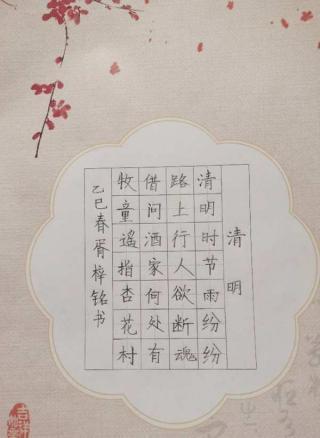 清明
清明时节雨纷纷
路上行人欲断魂
借问酒家何处有
牧童遥指杏花村
乙巳春胥梓铭书